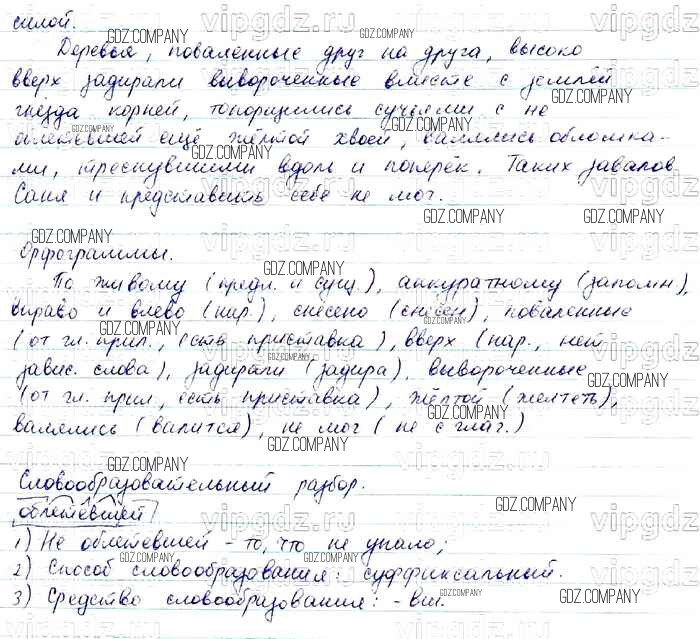 силой.
Деревья, поваленные друг на друга, высоко
вверх задирали вывороченные вместе с землёй
гнёзда корней, топорщились сучьями с не
облетевшей ещё жёлтой хвоей, валялись обломка-
ми, треснувшими вдоль и поперёк. Таких завалов
Саня и представить себе не мог.
Орфограммы.
По живому (предл. и сущ.), аккуратному (запомн),
вправо и влево (нар.), снесено (снесён), поваленные
(от гл. прил., есть приставка), вверх (нар., нет
завис. слова), задирали (задира), вывороченные
(от гл. прил, есть приставка), жёлтой (желтеть),
валялись (валится), не мог (не с глаг.)
Словообразовательный разбор.
облетевшей
1) Не облетевшей - то, что не упало;
2) Способ словообразования: суффиксальный.
3) Средство словообразования: -вш.